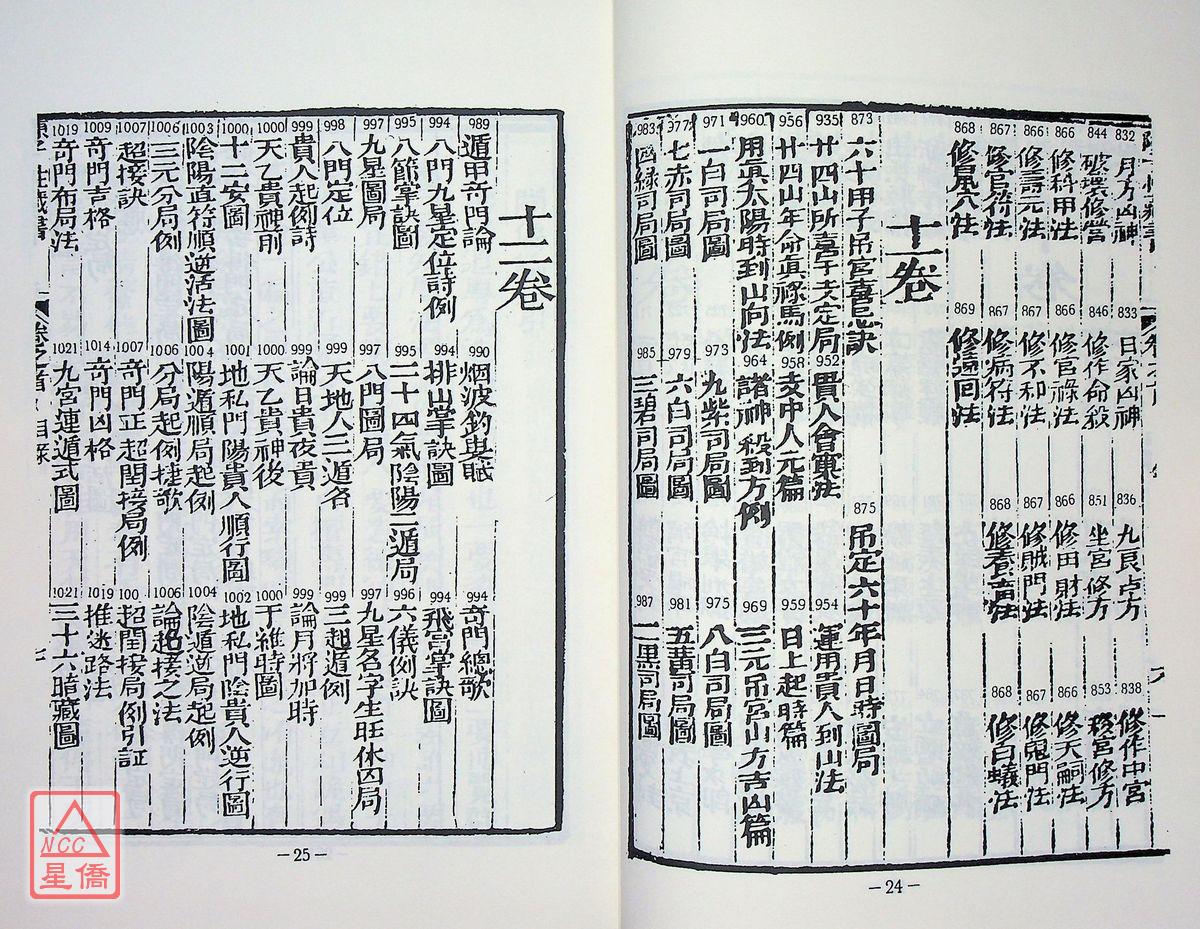 832 月方凶神 833 日家凶神 836 九良占方 838 修作中宮
844 破壞修營 846 修作命殺 851 坐宮修方 853 移宮修方
866 修科甲法 866 修官祿法 866 修田財法 866 修天嗣法
866 修壽元法 867 修不和法 867 修賊門法 867 修鬼門法
867 修官符法 867 修病符法 868 修養畜法 868 修白蟻法
868 修凮穴法 869 修遠回法
十一卷
873 六十甲子吊宮喜忌訣 875 吊定六十年月日時圖局
935 廿四山所喜干支定局 952 貴人會窠法 954 運用貴人到山法
956 廿四山年命眞祿馬例 958 支中人元篇 959 日上起時篇
960 用眞太陽時到山向法 964 諸神殺到方例 969 三元吊宮山方吉凶篇
971 一白司局圖 973 九紫司局圖 975 八白司局圖
977 七赤司局圖 979 六白司局圖 981 五黃司局圖
983 四綠司局圖 985 三碧司局圖 987 二黑司局圖
－24－
十二卷
989 遁甲竒門論 990 烟波釣叟賦 994 竒門總歌
994 八門九星定位詩例 994 排山掌訣圖 994 飛宮掌訣圖
995 八節掌訣圖 995 二十四氣陰陽二遁局 996 六儀例訣
997 九星圖局 997 八門圖局 997 九星名字生旺休囚局
998 八門定位 999 天地人三遁名 999 三起遁例
999 貴人起例詩 999 論日貴夜貴 999 論月將加時
1000 天乙貴神前 1000 天乙貴神後 1000 于維時圖
1000 十二安圖 1001 地私門陽貴人順行圖 1002 地私門陰貴人逆行圖
1003 陰陽直符順逆活法圖 1004 陽遁順局起例 1004 陰遁逆局起例
1006 三元分局例 1006 分局起例捷歌 1006 論超接之法
1007 超接訣 1007 竒門正超閏接局例 100 超閏接局例引証
1009 竒門吉格 1014 竒門凶格 1019 推迷路法
1019 竒門布局法 1021 九宮連遁式圖 1021 三十六暗藏圖
卷之首 目錄 七
－25－
NCC
星僑